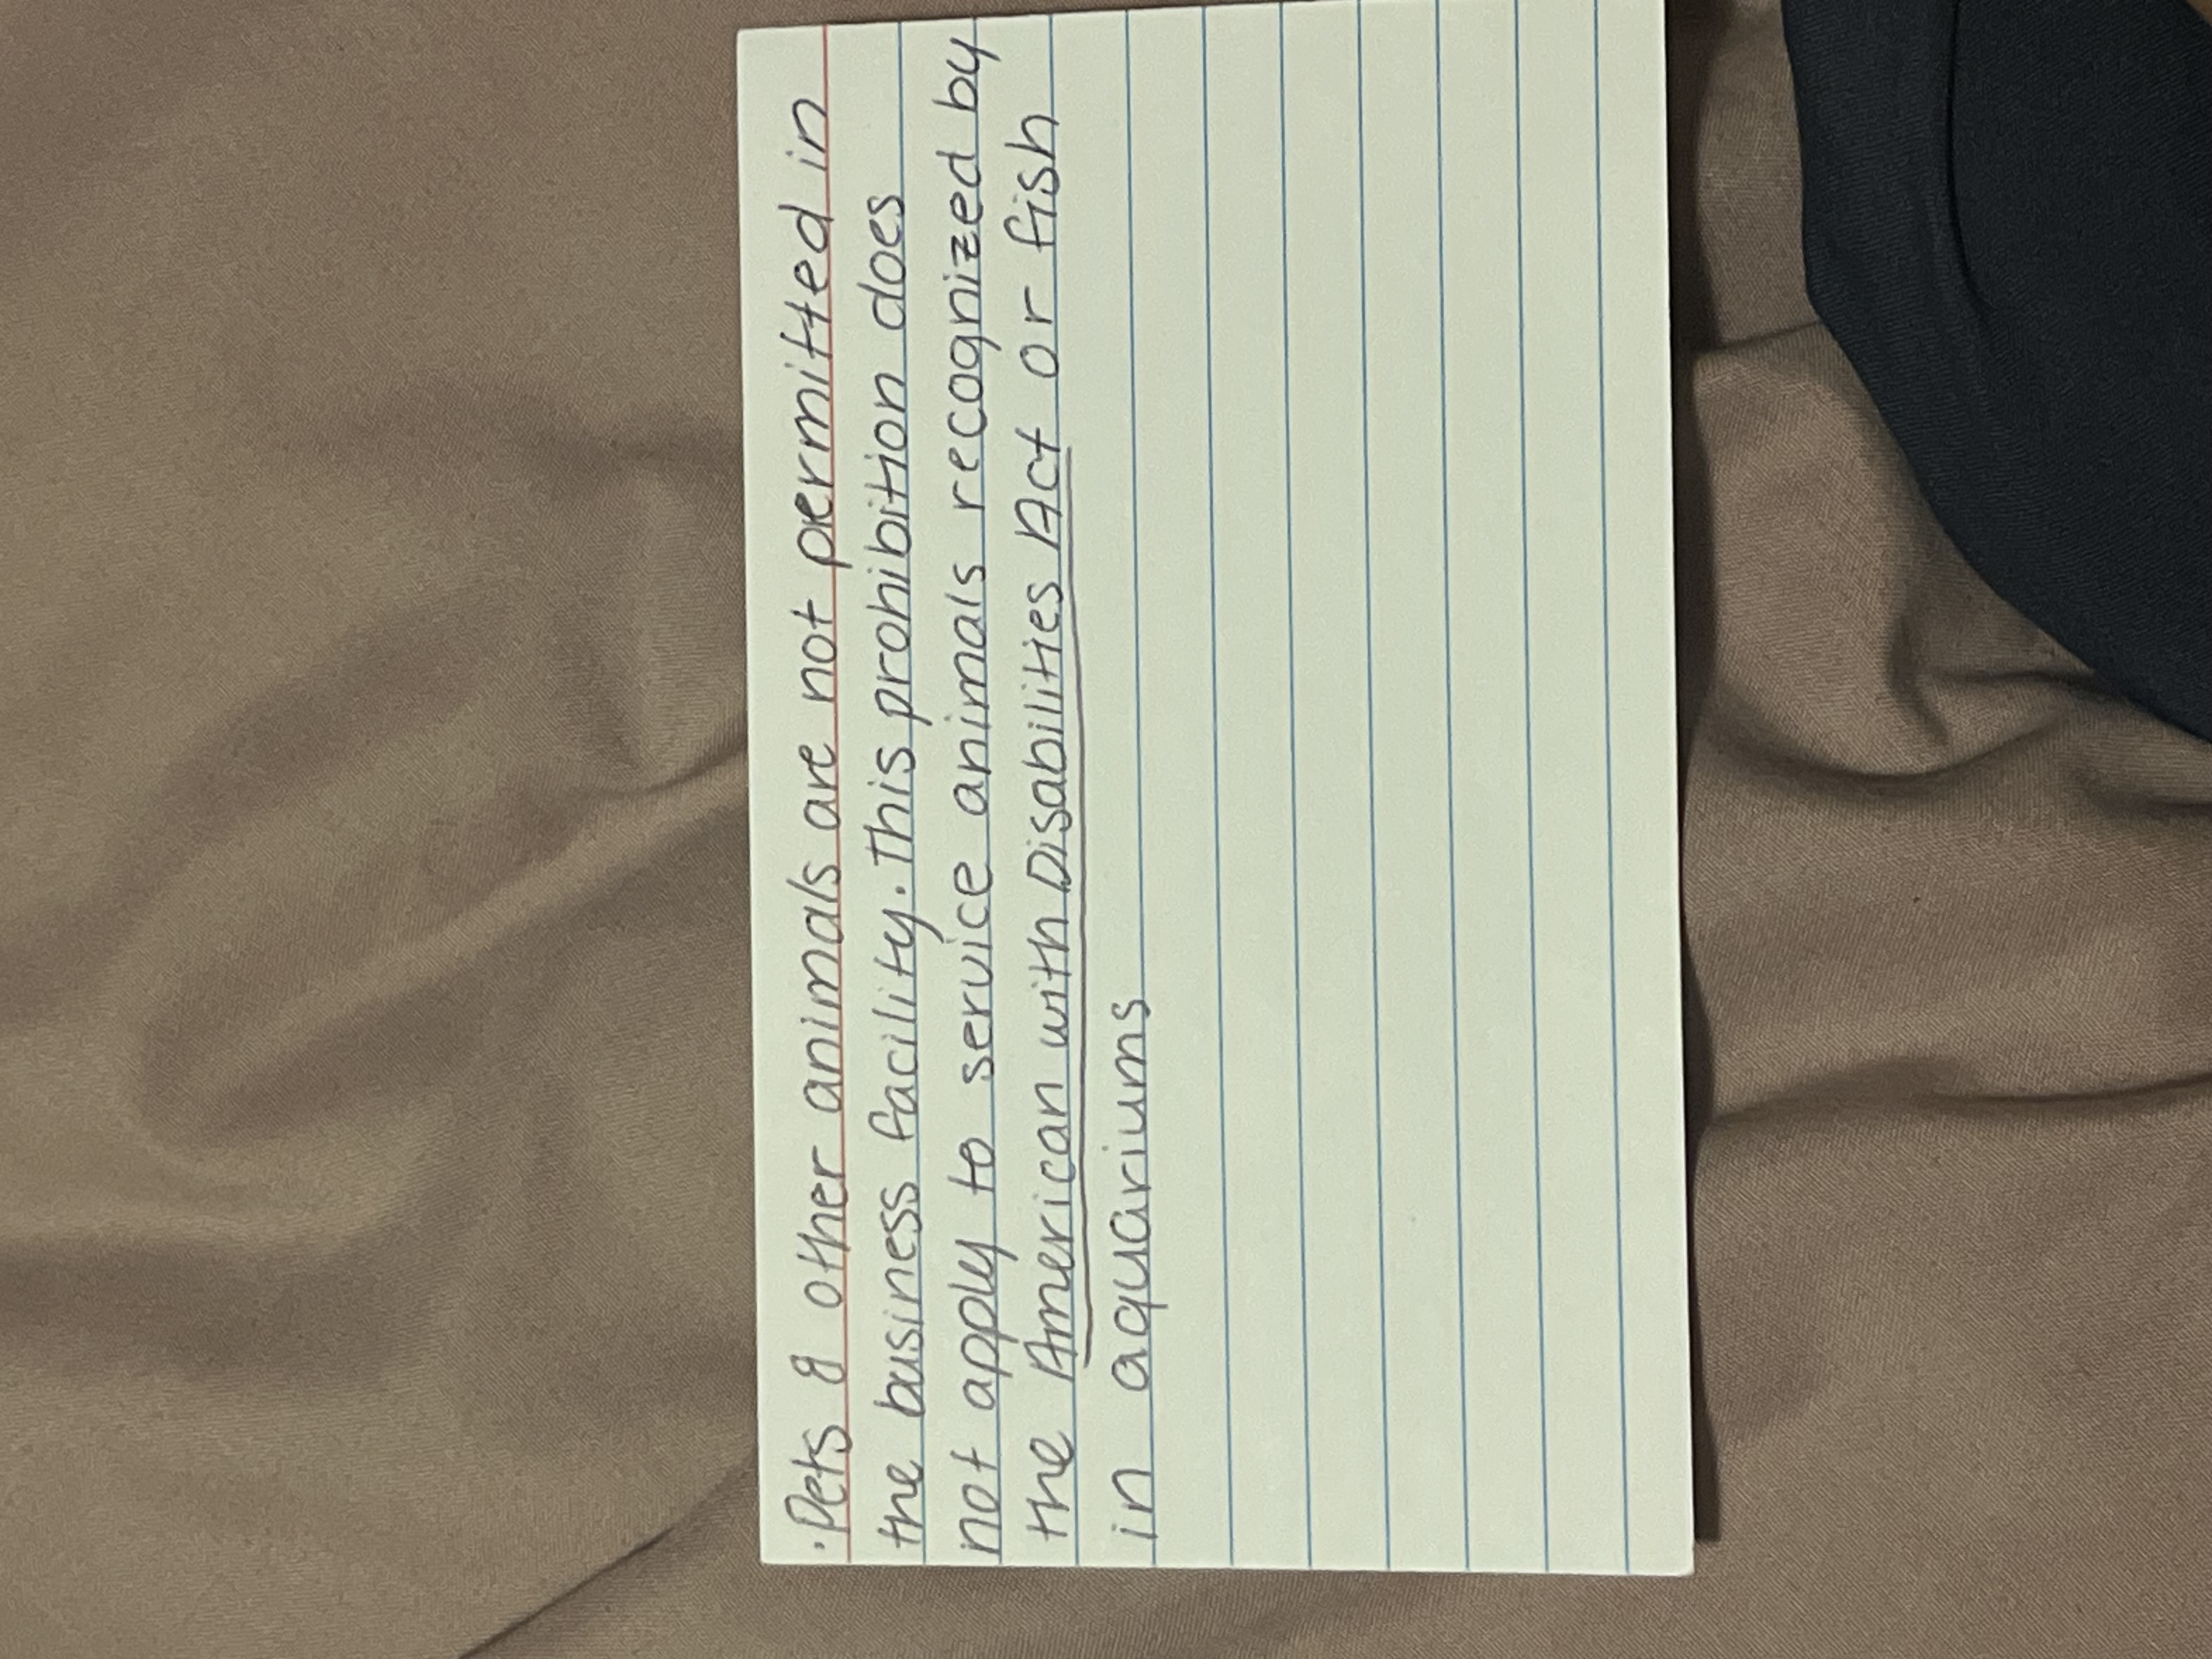 ·Pets & other animals are not permitted in
the business facility. This prohibition does
not apply to service animals recognized by
the American with Disabilities Act or fish
in aquariums